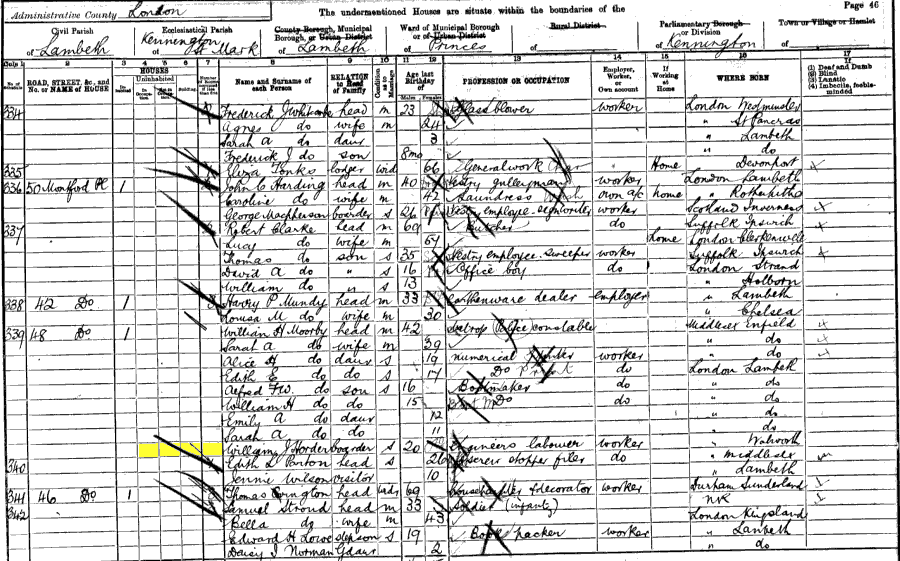 Administrative County London
The undermentioned Houses are situate within the boundaries of the
Page 46
Civil Parish of Lambeth
Ecclesiastical Parish of Kennington St Mark
County Borough, Municipal Borough, or Urban District of Lambeth
Ward of Municipal Borough or of Urban District of Princes
Rural District of
Parliamentary Borough or Division of Kennington
Town or Village or Hamlet of
Cols 1 2 3 4 5 6 7 8 9 10 11 12 13 14 15 16 17
No. of Schedule
ROAD, STREET, &c., and No. or NAME of HOUSE
HOUSES
Uninhabited
Name and Surname of each Person
RELATION to Head of Family
Condition as to Marriage
Age last Birthday of
Males Females
PROFESSION OR OCCUPATION
Employer, Worker, or Own account
Working at Home
WHERE BORN
(1) Deaf and Dumb
(2) Blind
(3) Lunatic
(4) Imbecile, feeble-minded
334 Frederick J Whitcombe head m 23 Glass blower worker London
Agnes do wife m 24 " St Pancras
Sarah A do daur 3 " Lambeth
Frederick J do son 8mo " do
335 Eliza Tonks lodger wid 66 General work Home Devonport
336 50 Montford Pl 1 John C Harding head m 40 Vestry worker London Lambeth
Caroline do wife m 42 Laundress own a/c home " Rotherhithe
George Macpherson boarder s 26 Vestry employe worker Scotland Inverness
337 Robert Clarke head m 69 Butcher do Suffolk Ipswich
Lucy do wife m 67 Home London Clerkenwell
Thomas do son s 35 Vestry employee sweeper worker Suffolk Ipswich
David A do " s 16 Office boy do London Strand
William do " s 13 " Holborn
338 42 Do 1 Harry P Mundy head m 33 earthenware dealer employer " Lambeth
Louisa M do wife m 30 " Chelsea
339 48 Do 1 William H Moorby head m 42 Metrop Police constable Middlesex Enfield
Sarah A do wife m 39 " do
Alice H do daur s 19 numerical printer worker " do
Edith E do do s 17 Do do London Lambeth
Alfred F.W. do son s 16 Bookmaker do " do
William H do do 15 Do do " do
Emily A do daur 12 " do
Sarah A do do 11 " do
William J Horder boarder s 20 Engineers labourer worker " Walworth
340 Edith L Porton head s 26 stopper filer do " Middlesex
Jennie Wilson visitor 10 " Lambeth
341 46 Do 1 Thomas head widr 69 House decorator worker Durham Sunderland
342 Samuel Stroud head m 33 Soldier (infantry) NK
Bella do wife m 43 London Kingsland
Edward H Lowe stepson s 19 Book packer worker " Lambeth
Daisy I Norman Gdaur 2 " do